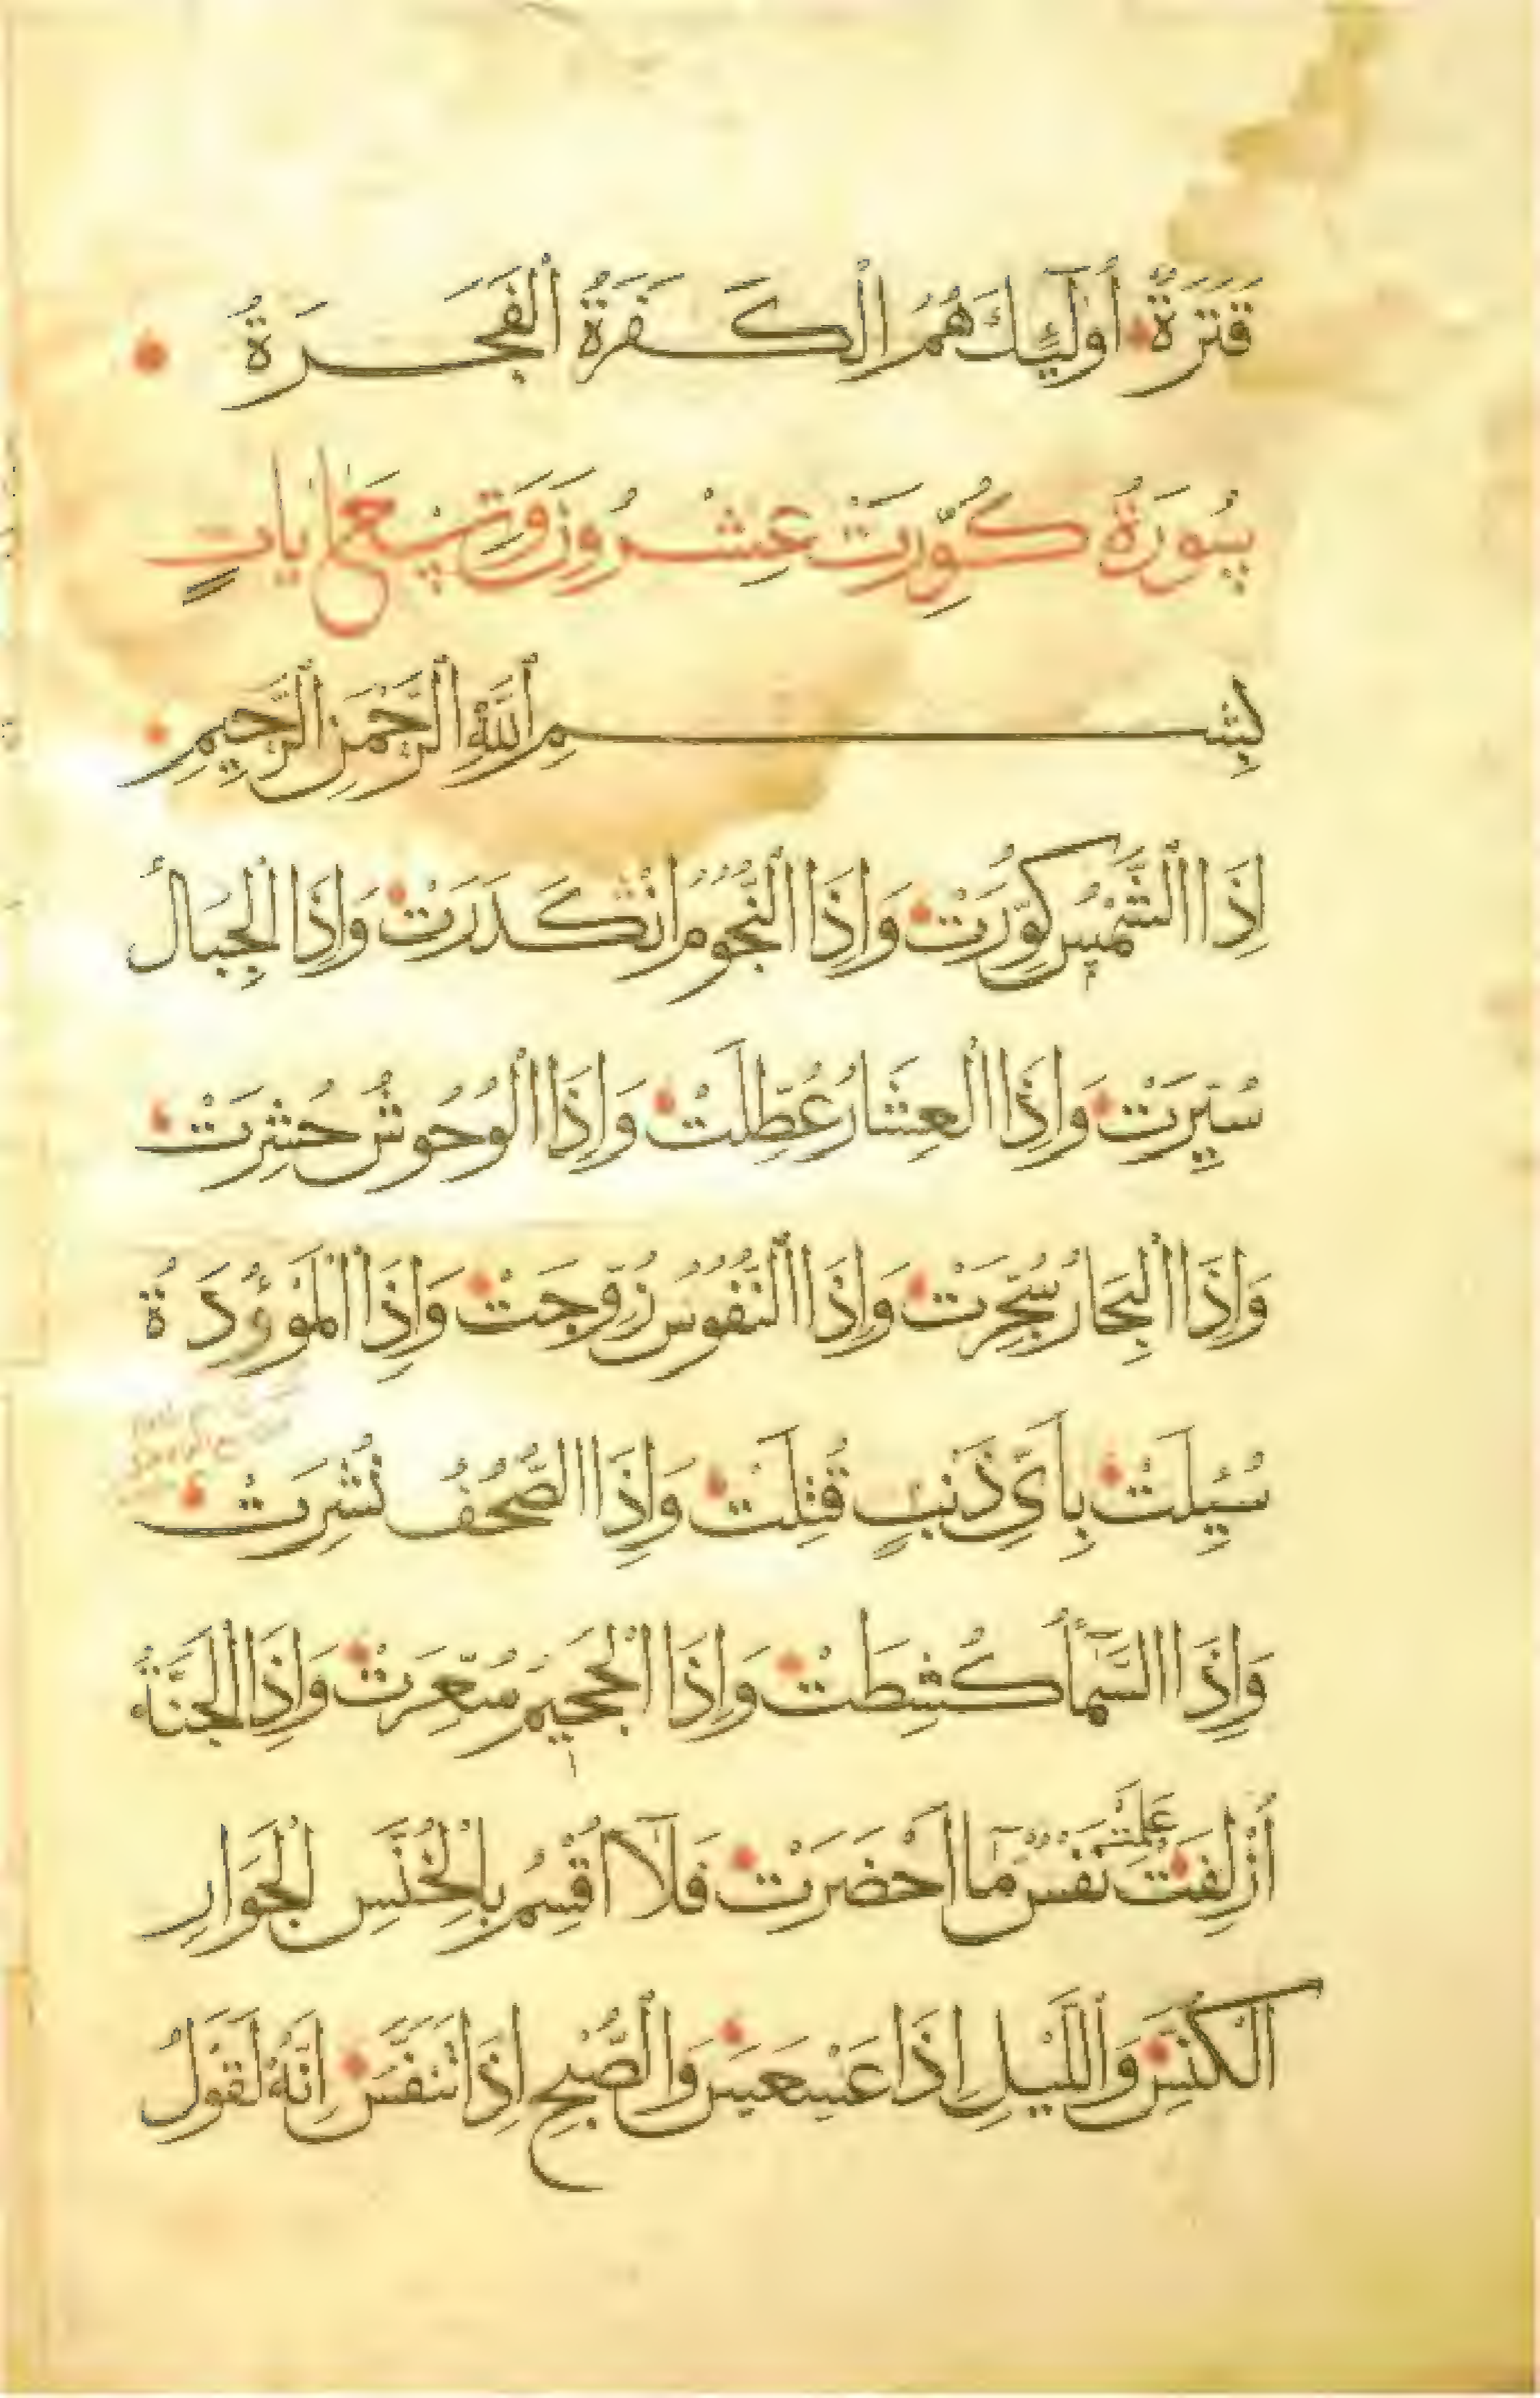 قَتَرَةٌ أُولَٰٓئِكَ هُمُ الْكَفَرَةُ الْفَجَرَةُ
سُورَةُ كُوِّرَتْ عِشْرُونَ وَتِسْعُ اٰيَاتٍ
بِسْمِ اللَّهِ الرَّحْمٰنِ الرَّحِيمِ
اِذَا الشَّمْسُ كُوِّرَتْ وَاِذَا النُّجُومُ انْكَدَرَتْ وَاِذَا الْجِبَالُ
سُيِّرَتْ وَاِذَا الْعِشَارُ عُطِّلَتْ وَاِذَا الْوُحُوشُ حُشِرَتْ
وَاِذَا الْبِحَارُ سُجِّرَتْ وَاِذَا النُّفُوسُ زُوِّجَتْ وَاِذَا الْمَوْؤُدَةُ
سُئِلَتْ بِاَيِّ ذَنْبٍ قُتِلَتْ وَاِذَا الصُّحُفُ نُشِرَتْ
وَاِذَا السَّمَآءُ كُشِطَتْ وَاِذَا الْجَحِيمُ سُعِّرَتْ وَاِذَا الْجَنَّةُ
أُزْلِفَتْ عَلِمَتْ نَفْسٌ مَّآ اَحْضَرَتْ فَلَآ اُقْسِمُ بِالْخُنَّسِ الْجَوَارِ
الْكُنَّسِ وَالَّيْلِ اِذَا عَسْعَسَ وَالصُّبْحِ اِذَا تَنَفَّسَ اِنَّهُ لَقَوْلُ